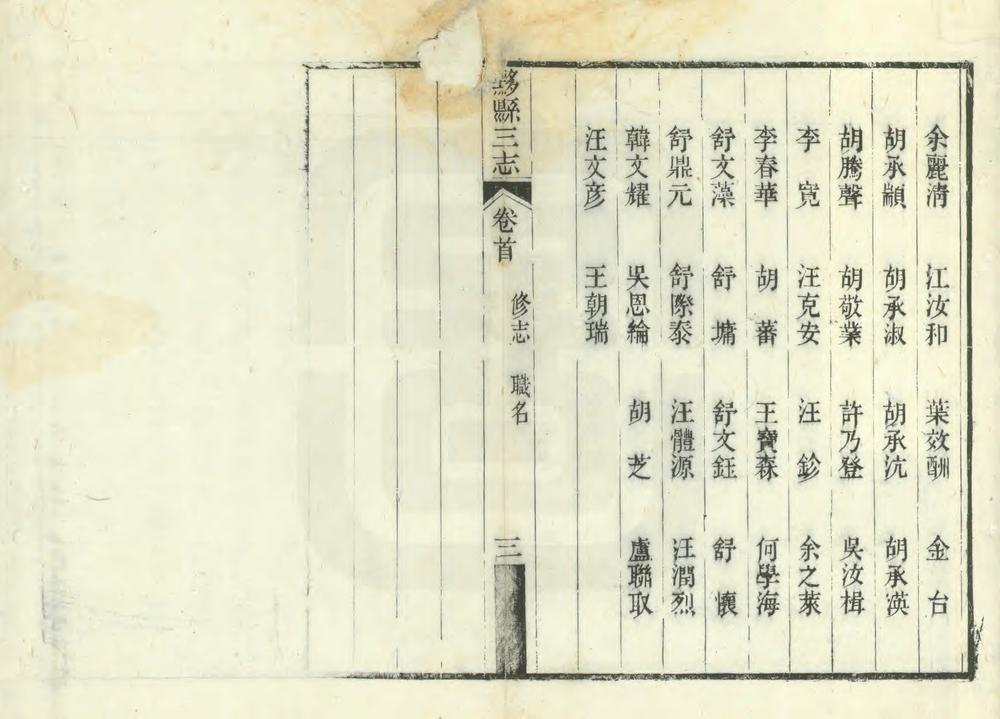 余麗清 江汝和 葉效酬 金台
胡承顓 胡承淑 胡承沆 胡承渶
胡騰聲 胡敬業 許乃登 吳汝楫
李寬 汪克安 汪鉁 余之萊
李春華 胡蕃 王寶森 何學海
舒文藻 舒墉 舒文鈺 舒懷
舒鼎元 舒際泰 汪體源 汪潤烈
韓文耀 吳恩綸 胡芝 盧聯取
汪文彥 王朝瑞
黟縣三志 卷首 修志 職名 三